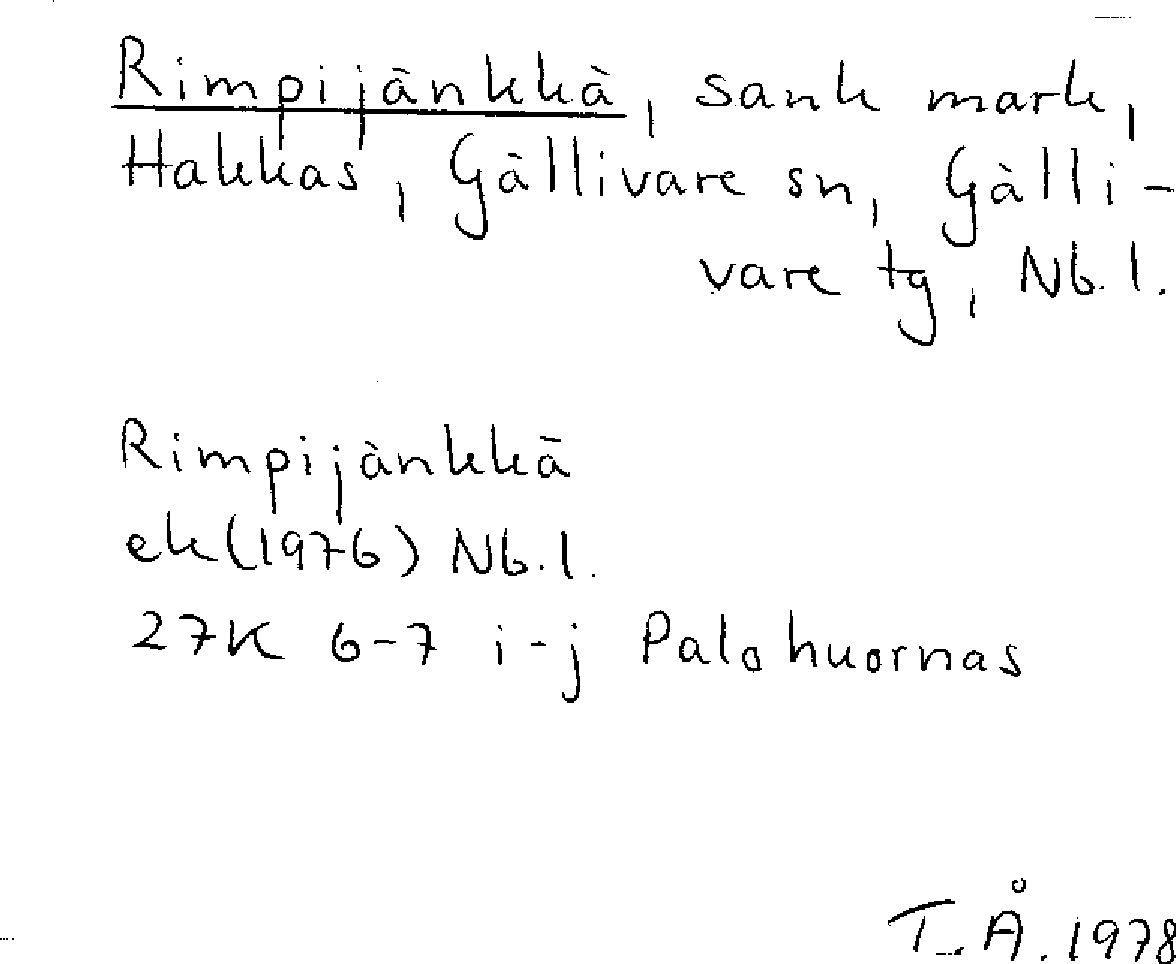 Rimpijänkkä, sank mark,
Hakkas, Gällivare sn, Gälli-
vare tg, Nb. l.
Rimpijänkkä
ek (1976) Nb. l.
27K 6-7 i-j Palohuornas
T. Å. 1978